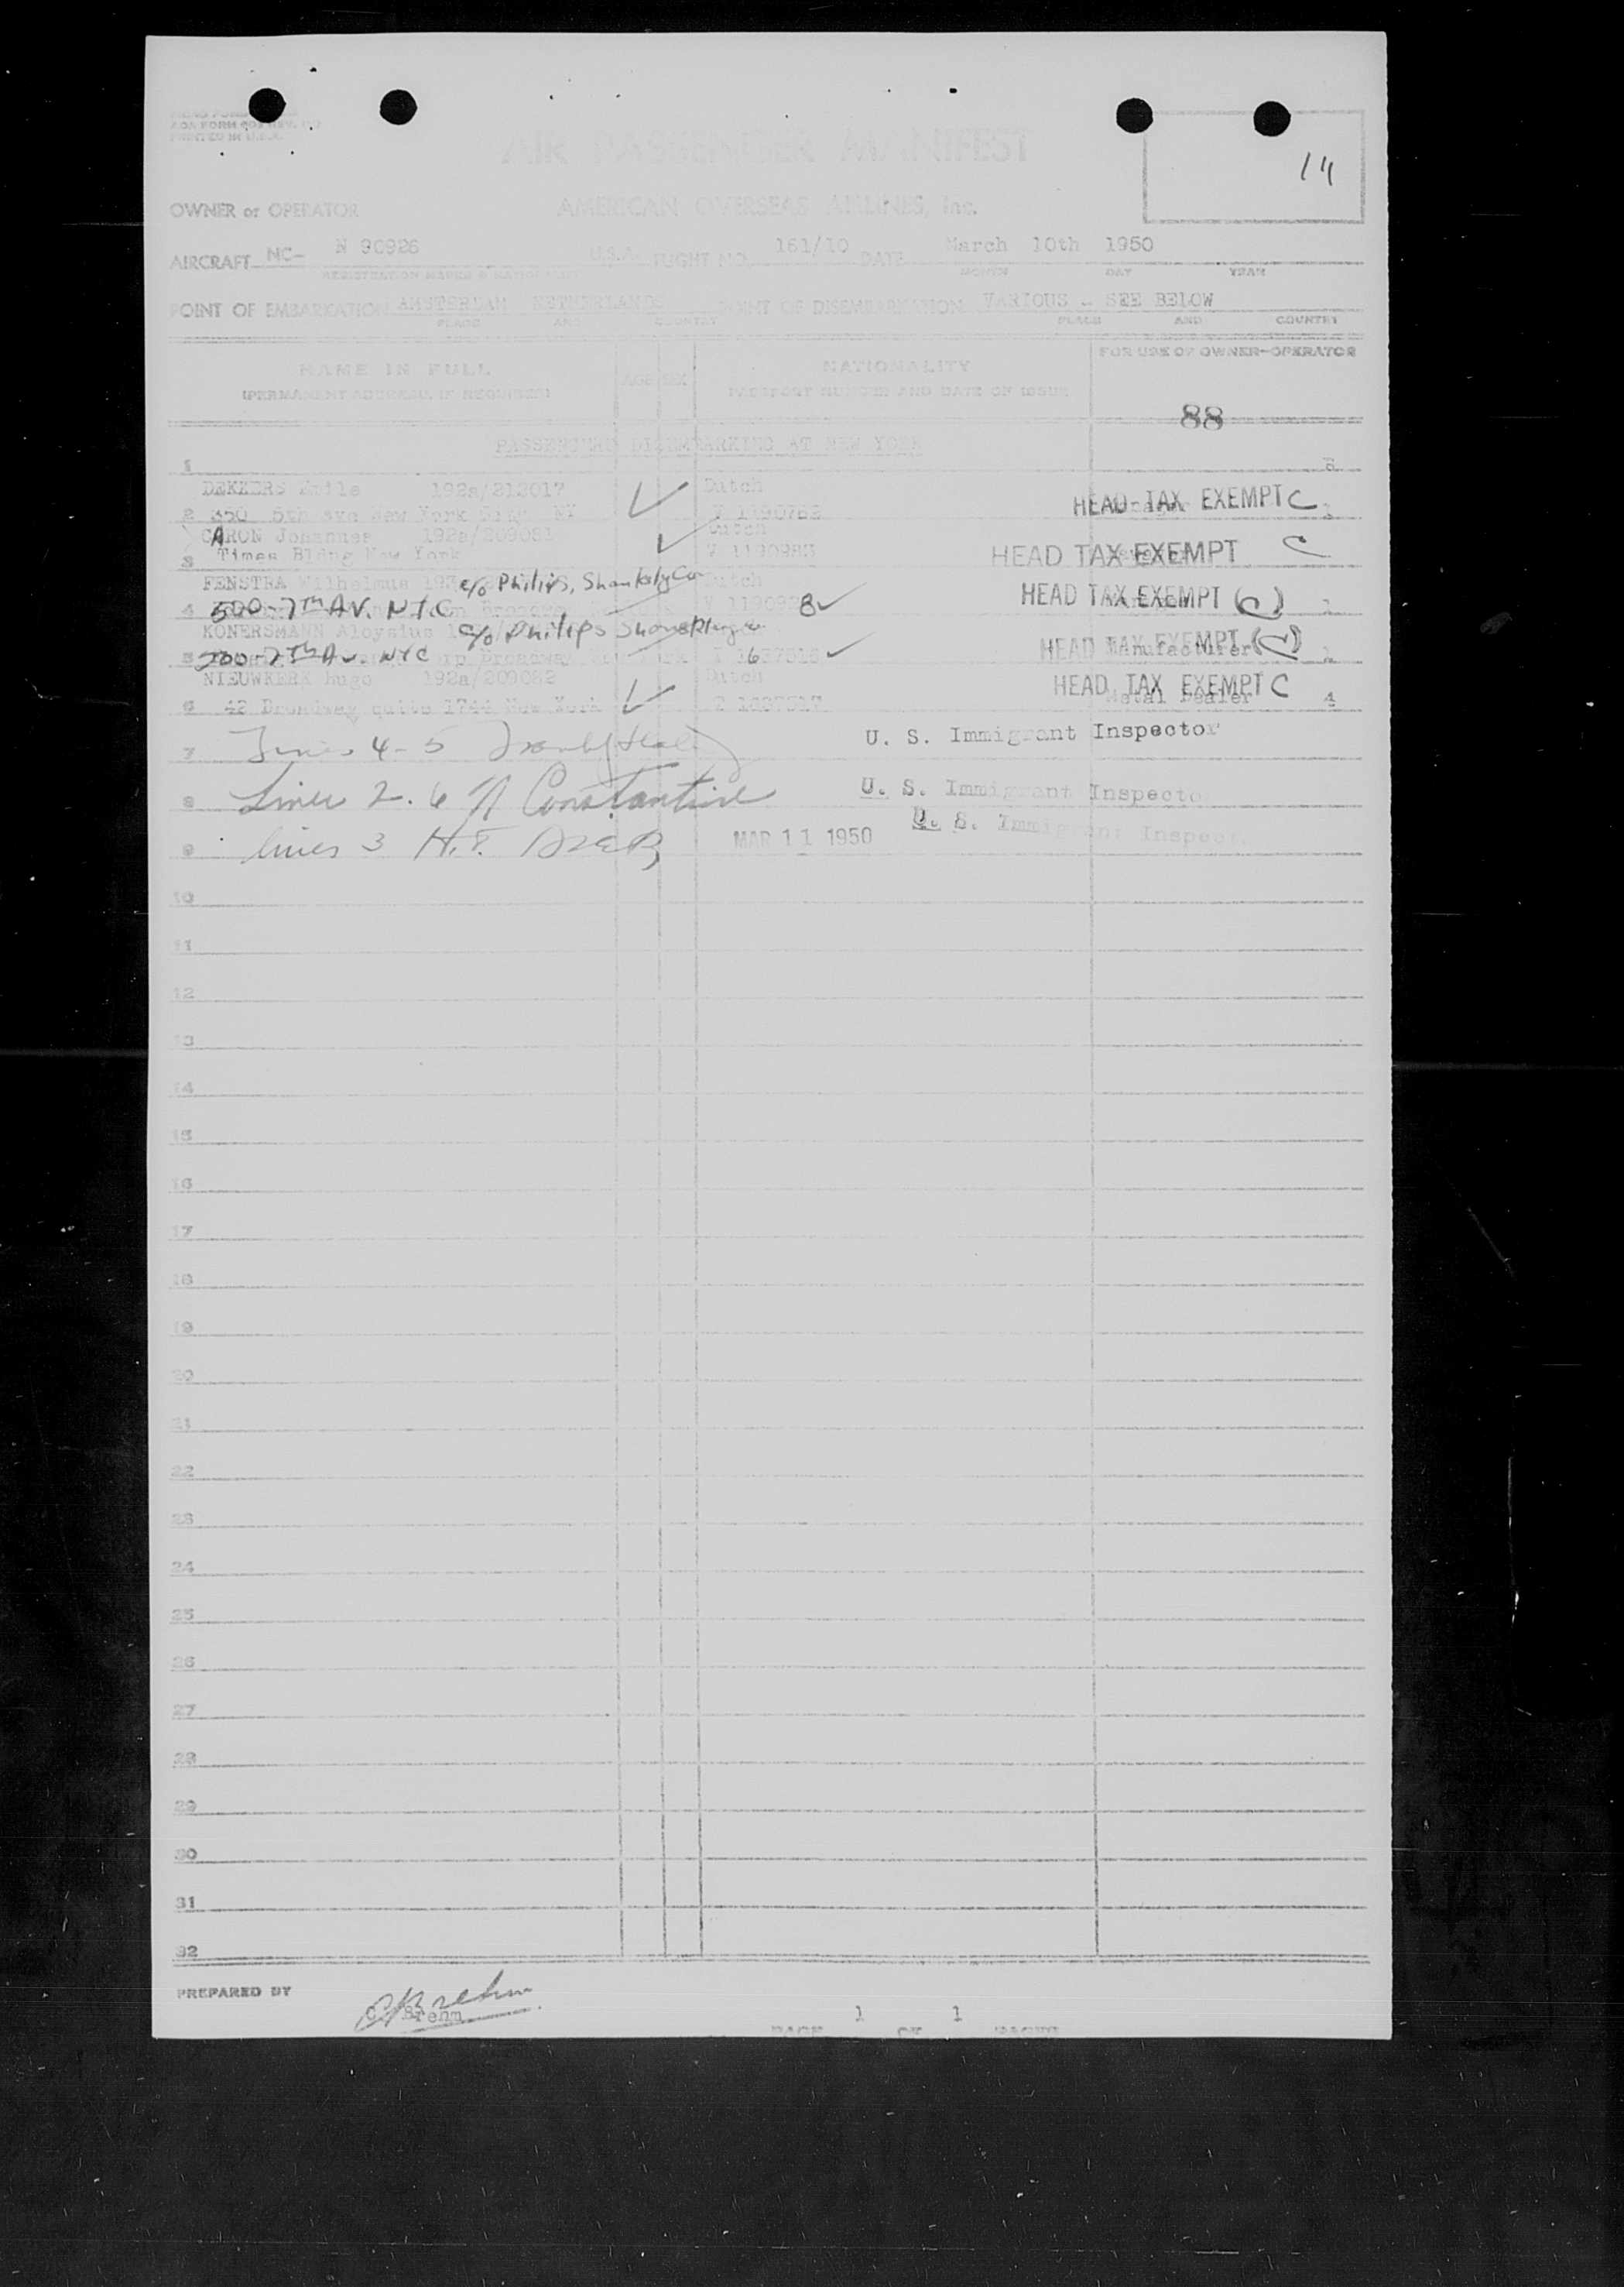 AOA FORM
PRINTED IN U.S.A.
AIR PASSENGER MANIFEST
14
OWNER or OPERATOR AMERICAN OVERSEAS AIRLINES, Inc.
AIRCRAFT NC- N 90926 U.S.A. FLIGHT NO. 161/10 DATE March 10th 1950
REGISTRATION MARKS & NATIONALITY MONTH DAY YEAR
POINT OF EMBARKATION AMSTERDAM NETHERLANDS POINT OF DISEMBARKATION VARIOUS - SEE BELOW
PLACE AND COUNTRY PLACE AND COUNTRY
NAME IN FULL AGE SEX NATIONALITY FOR USE OF OWNER-OPERATOR
(PERMANENT ADDRESS, IF REQUIRED) PASSPORT NUMBER AND DATE OF ISSUE
88
PASSENGERS DISEMBARKING AT NEW YORK
1
DEKKERS Emile 192a/213017 Dutch
2 350 5th ave New York City NY HEAD TAX EXEMPT C
CARON Johannes Dutch
3 Times Bldng New York HEAD TAX EXEMPT C
FENSTRA Wilhelmus c/o Philips, Dutch
4 500-7th AV. N.Y.C. 8 HEAD TAX EXEMPT (C)
KONERSMANN Aloysius c/o Philips
5 7th Av. NYC Broadway HEAD TAX EXEMPT Manufacturer
NIEUWKERK Hugo 192a/209082 Dutch HEAD TAX EXEMPT C
6 42 Broadway suite 1744 New York Metal Dealer 4
7 Lines 4-5 U. S. Immigrant Inspector
8 Lines 2. 6 Constantine U. S. Immigrant Inspector
9 lines 3 H.T. MAR 11 1950 U. S. Immigrant Inspect
10
11
12
13
14
15
16
17
18
19
20
21
22
23
24
25
26
27
28
29
30
31
32
PREPARED BY C Brehm
C. Brehm
PAGE 1 OF 1 PAGES